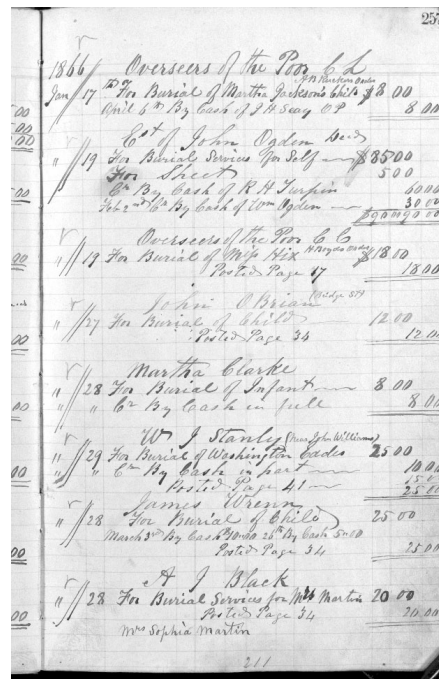 257
1866 Overseers of the Poor C L
A B Ruckers Order
Jan 17 To For Burial of Martha Jacksons Child $8 00
April 6th By Cash of J H Seay O P 8 00
Est of John Ogden Decd
" 19 For Burial Services for Self $85 00
For Sheet 5 00
Cr By Cash of R H Turpin 60 00
Feb 2nd Cr By Cash of Wm Ogden 30 00
$90 00 90 00
Overseers of the Poor C C
" 19 For Burial of Miss Hix $18 00
Posted Page 17 18 00
John O Brian (Bridge St)
" 27 For Burial of Child 12 00
Posted Page 34 12 00
Martha Clarke
" 28 For Burial of Infant 8 00
" " Cr By Cash in full 8 00
W J Stanly (near John Williams)
" 29 For Burial of Washington Eades 25 00
" " Cr By Cash in part 10 00
Posted Page 41 15 00
25 00
James Wrenn
" 28 For Burial of Child 25 00
March 3rd By Cash $10 00 26th By Cash 5 00
Posted Page 34 25 00
A J Black
" 28 For Burial Services for Mrs Martin 20 00
Posted Page 34 20 00
Mrs Sophia Martin
211